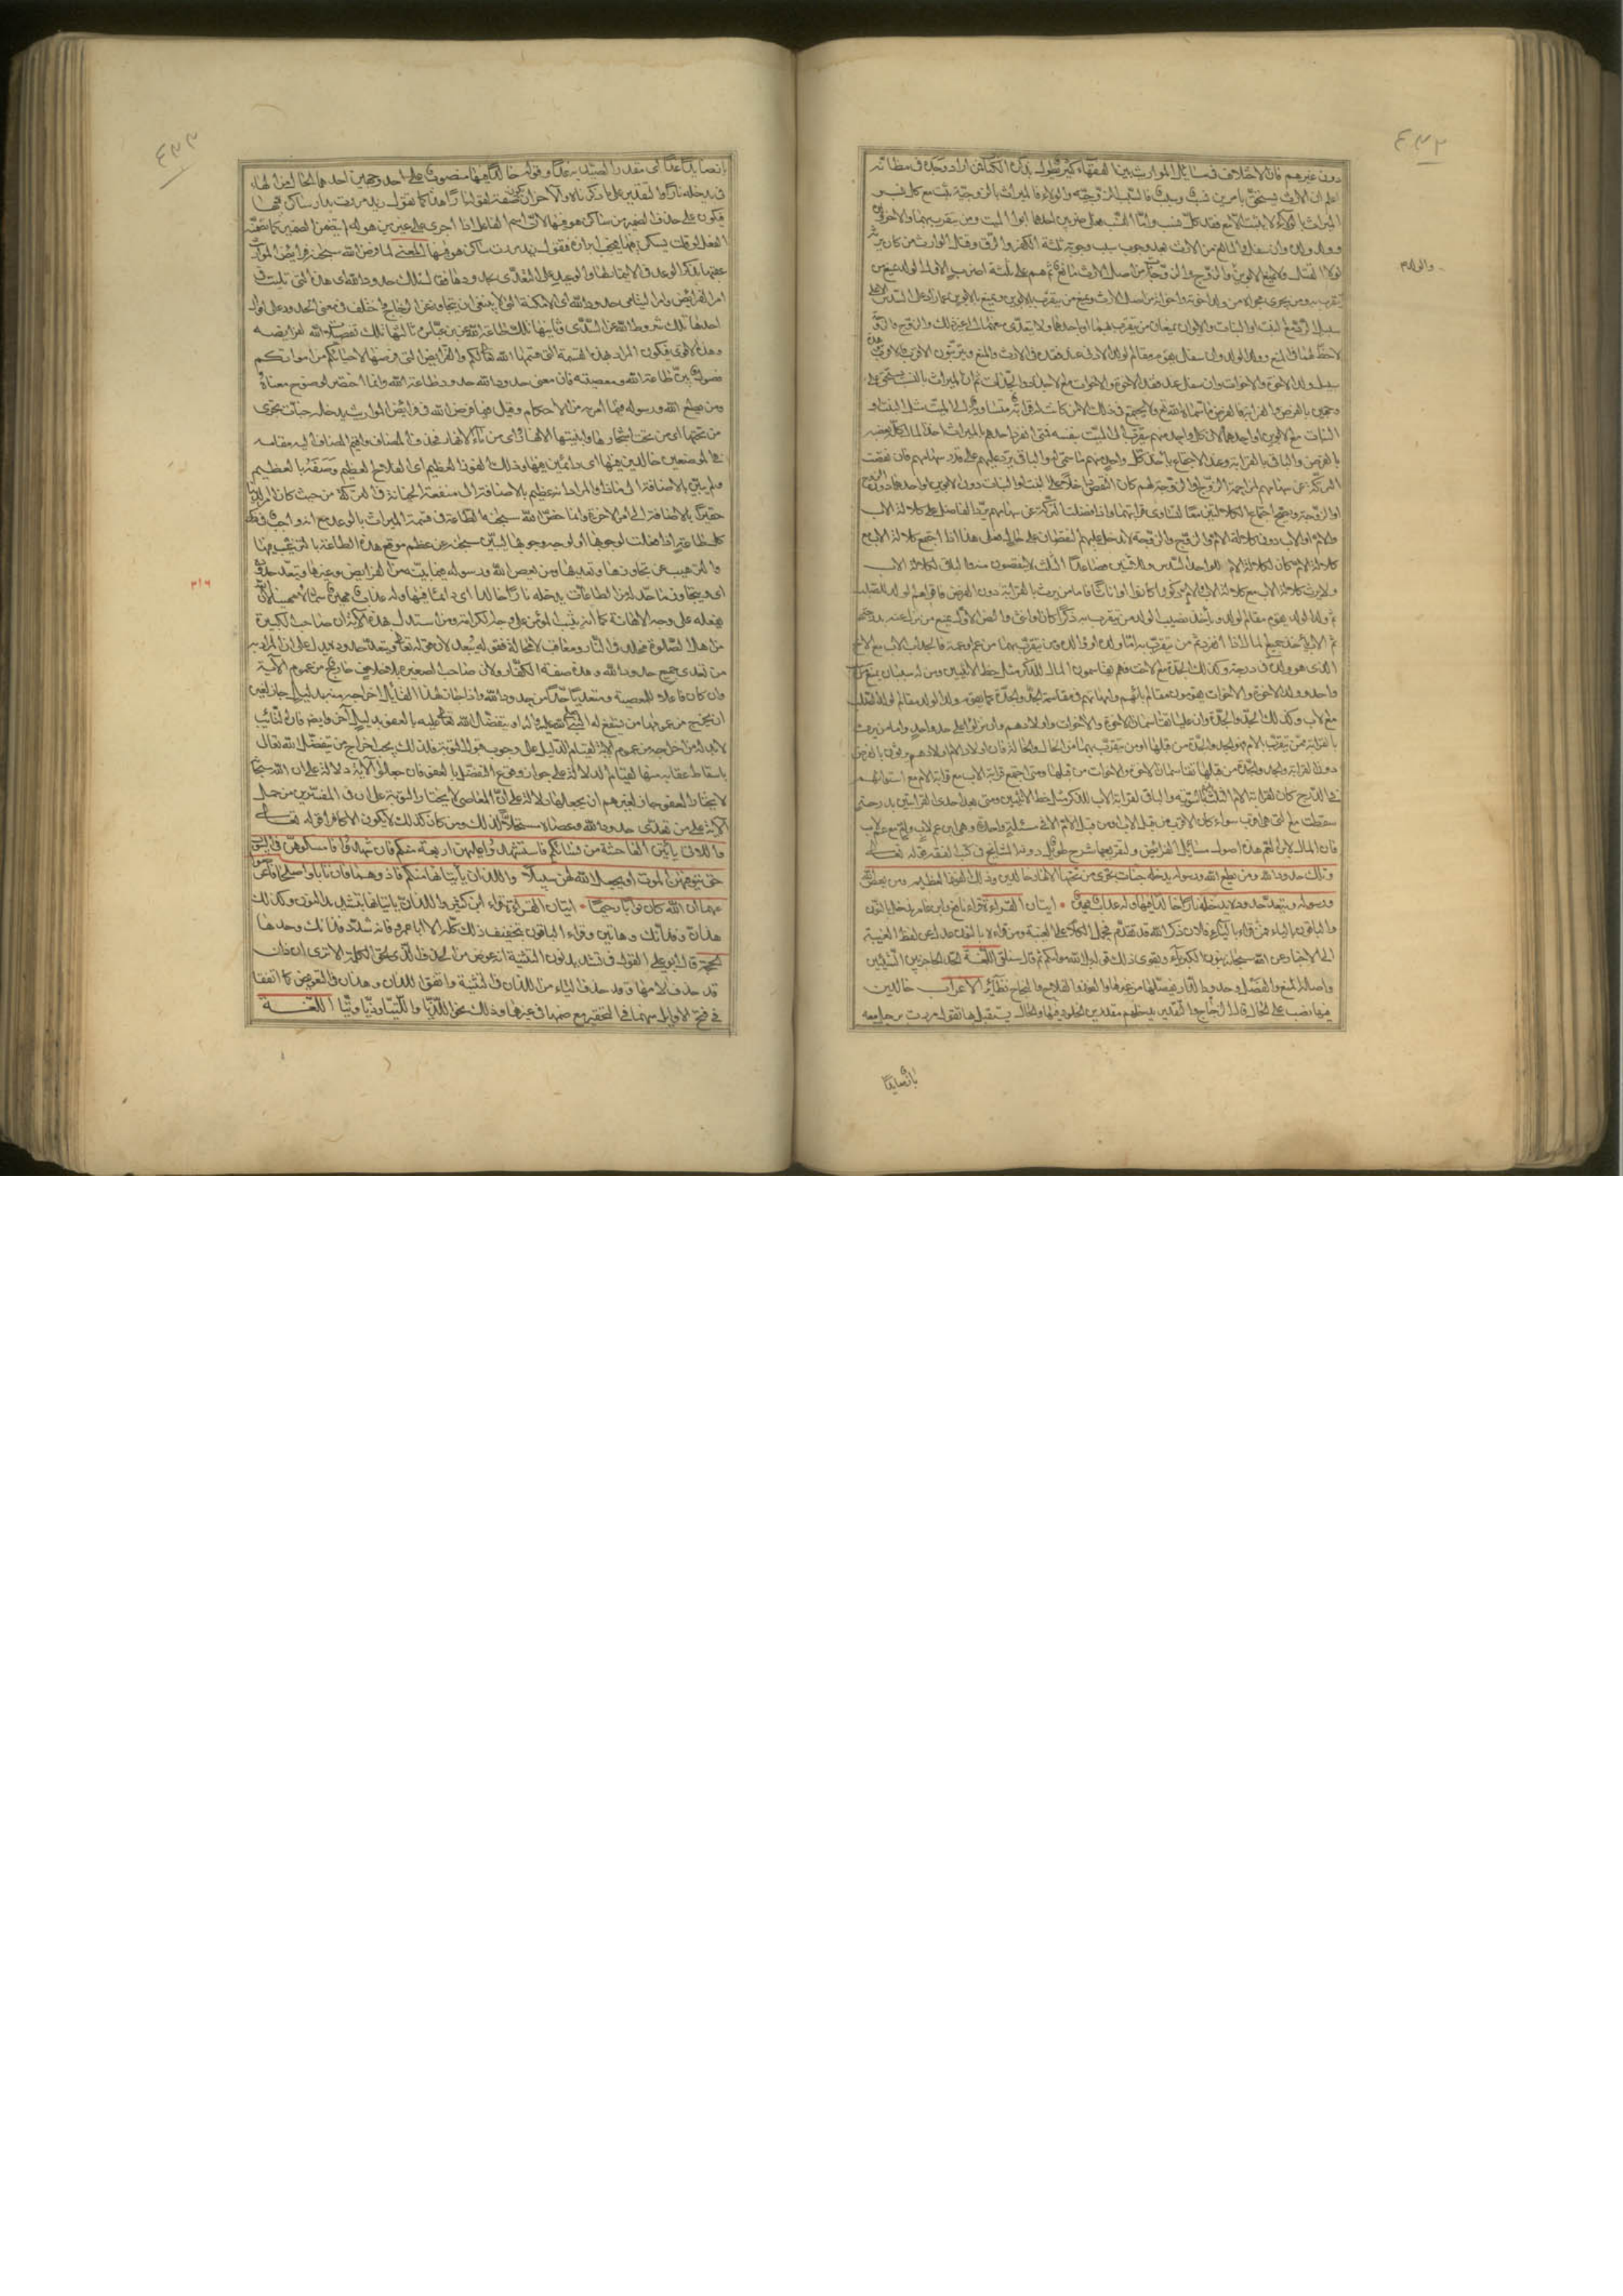 دون غيرهم فان الاختلاف في مسائل المواريث بين الفقهاء كثير يطول بذكره الكتاب فمن اراد وجده في مظانه
اعلم ان الارث يستحق بامرين نسب وسبب فالسبب الزوجية والولاء فالميراث بالزوجية يثبت مع كل نسب و
الميراث بالولاء لا يثبت الا مع فقد كل نسب واما النسب فعلى ضربين احدهما ابوا الميت ومن يتقرب بهما والاخر ولده
وولد ولده وان سفل والمانع من الارث بعد وجوب سبب وجوبه ثلثة الكفر والرق وقتل الوارث من كان يرثه
لولا القتل ولا يمنع الابوين والزوج والزوجة من اصل الارث مانع ثم هم على ثلثة اضرب الاول الولد يمنع من
يتقرب به ومن يجري مجراه من ولد اخوته واخواته من اصل الارث ويمنع من يتقرب بالابوين ويمنع الابوين عما زاد على السدس الا على
سبيل الرد مع البنت او البنات والابوان يمنعان من يتقرب بهما او باحدهما ولا يتعدى منعهما الى غير ذلك والزوج والزوجة
لا حظ لهما في المنع وولد الولد وان سفل يقوم مقام الولد الادنى عند فقده في الارث والمنع ويترتبون الاقرب فالاقرب وهذه
سبيل ولد الاخوة والاخوات وان سفل عند فقد الاخوة والاخوات مع الاجداد والجدات ثم ان الميراث بالنسب يستحق على
وجهين بالفرض والقرابة فالفرض ما سماه الله تعم ولا يجتمع في ذلك الا من كانت قرابته متساوية الى الميت مثل البنت او
البنات مع الابوين او احدهما لان كل واحد منهم يتقرب الى الميت بنفسه فمتى انفرد احدهم بالميراث اخذ المال كله بعضه
بالفرض والباقي بالقرابة وعند الاجتماع ياخذ كل واحد منهم ما سمي له والباقي يرد عليهم على قدر سهامهم فان نقصت
التركة عن سهامهم لمزاحمة الزوج او الزوجة لهم كان النقص داخلا على البنت او البنات دون الابوين او احدهما ودون الزوج
او الزوجة ويصح اجتماع الكلالتين معا لتساوي قرابتهما واذا فضلت التركة عن سهامهم يرد الفاضل على كلالة الاب
والام او الاب دون كلالة الام والزوج والزوجة لا يدخل عليهم النقصان على حال فعلى هذا اذا اجتمع كلالة الاب مع
كلالة الام كان لكلالة الام للواحد السدس وللاثنين فصاعدا الثلث لا ينقصون منه والباقي لكلالة الاب
ولا يرث كلالة الاب مع كلالة الاب والام ذكورا كانوا او اناثا فاما من يرث بالقرابة دون الفرض فاقواهم الولد للصلب
ثم ولد الولد يقوم مقام الولد وياخذ نصيب الولد من يتقرب به ذكرا كان او انثى والبطن الاول يمنع من نزل عنه بدرجة
ثم الاب ياخذ جميع المال اذا انفرد ثم من يتقرب به اما ولده او والده ومن يتقرب بهما من عم او عمة فالجد اب الاب مع الاخ
الذي هو ولده في درجة وكذلك الجدة مع الاخت فهم يتقاسمون المال للذكر مثل حظ الانثيين ومن له سببان يمنع من له سبب
واحد وولد الاخوة والاخوات يقومون مقام بائهم وامهاتهم في مقاسمة الجد والجدة كما يقوم ولد الولد مقام الولد للصلب
مع الاب وكذلك الجد والجدة وان عليا يقاسمان الاخوة والاخوات واولادهم وان نزلوا على حد واحد واما من يرث
بالقرابة ممن يتقرب بالام فهو الجد والجدة من قبلها او من يتقرب بهما من الخال والخالة فان اولاد الام يرثون بالفرض
دون القرابة والجد والجدة من قبلها يقاسمان الاخوة والاخوات من قبلها ومتى اجتمع قرابة الاب مع قرابة الام مع استوائهم
في الدرج كان لقرابة الام الثلث بالسوية والباقي لقرابة الاب للذكر مثل حظ الانثيين ومتى بعد احدى القرابتين بدرجة
سقطت مع التي هي اقرب سواء كان الاقرب من قبل الاب او من قبل الام الا في مسئلة واحدة وهي ابن عم لاب وام مع عم لاب
فان المال لابن العم هذه اصول مسائل الفرائض ولتفريعها شرح طويل دونه المشايخ في كتب الفقه قوله تعالى
وتلك حدود الله ومن يطع الله ورسوله يدخله جنات تجري من تحتها الانهار خالدين وذلك الفوز العظيم ومن يعص الله
ورسوله ويتعد حدوده يدخله نارا خالدا فيها وله عذاب مهين ايتان القراءة قراء نافع وابن عامر ندخله بالنون
والباقون بالياء فمن قراء بالياء فلان ذكر الله قد تقدم فحمل الكلام على الغيبة ومن قراء بالنون عدل عن لفظ الغيبة
الى الاخبار عن الله سبحانه بنون الكبرياء ويقوي ذلك قوله بل الله موليكم ثم قال سنلقي اللغة الحد الحاجز بين الشيئين
واصله المنع والفصل وحدود الدار تفصلها من غيرها والفوز الفلاح والنجاح نظائر الاعراب خالدين
فيها نصب على الحال قال الزجاج والتقدير يدخلهم مقدرين الخلود فيها والحال يستقبل بها تقول مررت برجل معه
والولد
باز صايدا
٤٣٢
باز صايدا به غدا اي مقدر الصيد به غدا وقوله خالدا فيها منصوب على احد وجهين احدهما الحال من الهاء
في يدخله نارا والتقدير على ما ذكرناه والاخر ان يكون صفة لقوله نارا وهذا كما تقول زيد مررت بدار ساكن فيها
فيكون على حذف الضمير من ساكن هو فيها لان اسم الفاعل اذا اجرى على غير من هو له لم يتضمن الضمير كما يتضمنه
الفعل لو قلت يسكن فيها لم يجب ابرازه فتقول زيد مررت بدار ساكن هو فيها المعنى لما فرض الله سبحانه فرايض المواريث
عقبها بذكر الوعد في الايتمار لها والوعيد على التعدي بحدودها فقال تلك حدود الله اي هذه التي تليت في
امر الفرايض وامر اليتامى حدود الله اي الامكنة التي لا ينبغي ان يتجاوز عن الزجاج واختلف في معنى الحدود على اقوال
احدها تلك شروط الله عن السدي وثانيها تلك طاعة الله عن ابن عباس وثالثها تلك تفصيلات الله لفرايضه
وهذا الاقوى فيكون المراد هذه القسمة التي قسمها الله تعالى لكم والفرايض التي فرضها لاحيائكم من امواتكم
فصول بين طاعة الله ومعصيته فان معنى حدود الله حدود طاعة الله وانما اختصر لوضوح معناه
ومن يطع الله ورسوله فيما امر به من الاحكام وقيل فيما فرض الله في فرائض المواريث يدخله جنات تجري
من تحتها اي من تحت اشجارها وابنيتها الانهار اي من ماء الانهار فحذف المضاف واقيم المضاف اليه مقامه
في الموضعين خالدين فيها اي دائمين فيها وذلك الفوز العظيم اي الفلاح العظيم وصفه بالعظيم
ولم يبين بالاضافة الى ماذا والمراد انه عظيم بالاضافة الى منفعة الخيانة في التركة من حيث كان امر الدنيا
حقيرا بالاضافة الى امر الاخرة وانما خص الله سبحانه الطاعة في قسمة الميراث بالوعد مع انه واجب في كل
كل طاعة اذا فعلت لوجوبها او لوجه وجوبها ليبين سبحانه عن عظم موقع هذه الطاعة بالترغيب فيها
والترهيب عن تجاوزها وتعديها ومن يعص الله ورسوله فيما بينه من الفرايض وغيرها ويتعد حدوده
اي ويتجاوز ما حد له من الطاعات يدخله نارا خالدا اي دائما فيها وله عذاب مهين سماه مهينا لان الله
يفعله على وجه الاهانة كما انه يثيب المؤمن على وجه الكرامة ومن استدل بهذه الاية ان صاحب الكبيرة
من اهل الصلوة مخلد في النار ومعاقب لا محالة فقوله بعيد لان قوله تعالى ويتعد حدوده يدل على ان المراد به
من تعدى جميع حدود الله وهذه صفة الكفار ولان صاحب الصغيرة بلا خلاف خارج من عموم الاية
وان كان فاعلا للمعصية ومتعديا حدا من حدود الله واذا جاز لهذا القايل اخراجه منه بدليل جاز لغيره
ان يخرج من عمومها من يشفع له النبي صلى الله عليه واله او يتفضل الله تعالى عليه بالعفو بدليل اخر وايضا فان التائب
لا بد من اخراجه من عموم الاية لقيام الدليل على وجوب قبول التوبة فكذلك يجب اخراج من يتفضل الله تعالى
باسقاط عقابه منها لقيام الدلالة على جواز وقوع التفضل بالعفو فان جعلوا الاية دلالة على ان الله سبحانه
لا يختار العفو جاز لغيرهم ان يجعلها دلالة على ان العاصي لا يختار التوبة على ان في المفسرين من حمل
الاية على من تعدى حدود الله وعصاه مستحلا لذلك ومن كان كذلك لا يكون الا كافرا قوله تعالى
واللاتي يأتين الفاحشة من نسائكم فاستشهدوا عليهن اربعة منكم فان شهدوا فامسكوهن في البيوت
حتى يتوفيهن الموت او يجعل الله لهن سبيلا واللذان يأتيانها منكم فاذوهما فان تابا واصلحا فاعرضوا
عنهما ان الله كان توابا رحيما ايتان القراءة قراء ابن كثير واللذان يأتيانها بتشديد النون وكذلك
هذان وفذانك وهاتين وقراء الباقون بتخفيف ذلك كله الا ابا عمرو فانه شدد فذانك وحدها
الحجة قال ابو علي القول في تشديد نون التثنية انه عوض من الحذف الذي لحق الكلمة الا ترى ان ذان
قد حذف لامها وقد حذف الياء من اللذان في التثنية واتفق اللذان وهذان في التعويض كما اتفقا
في فتح الاوايل منهما في التحقير مع ضمها في غيرهما وذلك نحو اللذيا واللتيا وذيا وتيا اللغة
٤٣٣
٣١٦